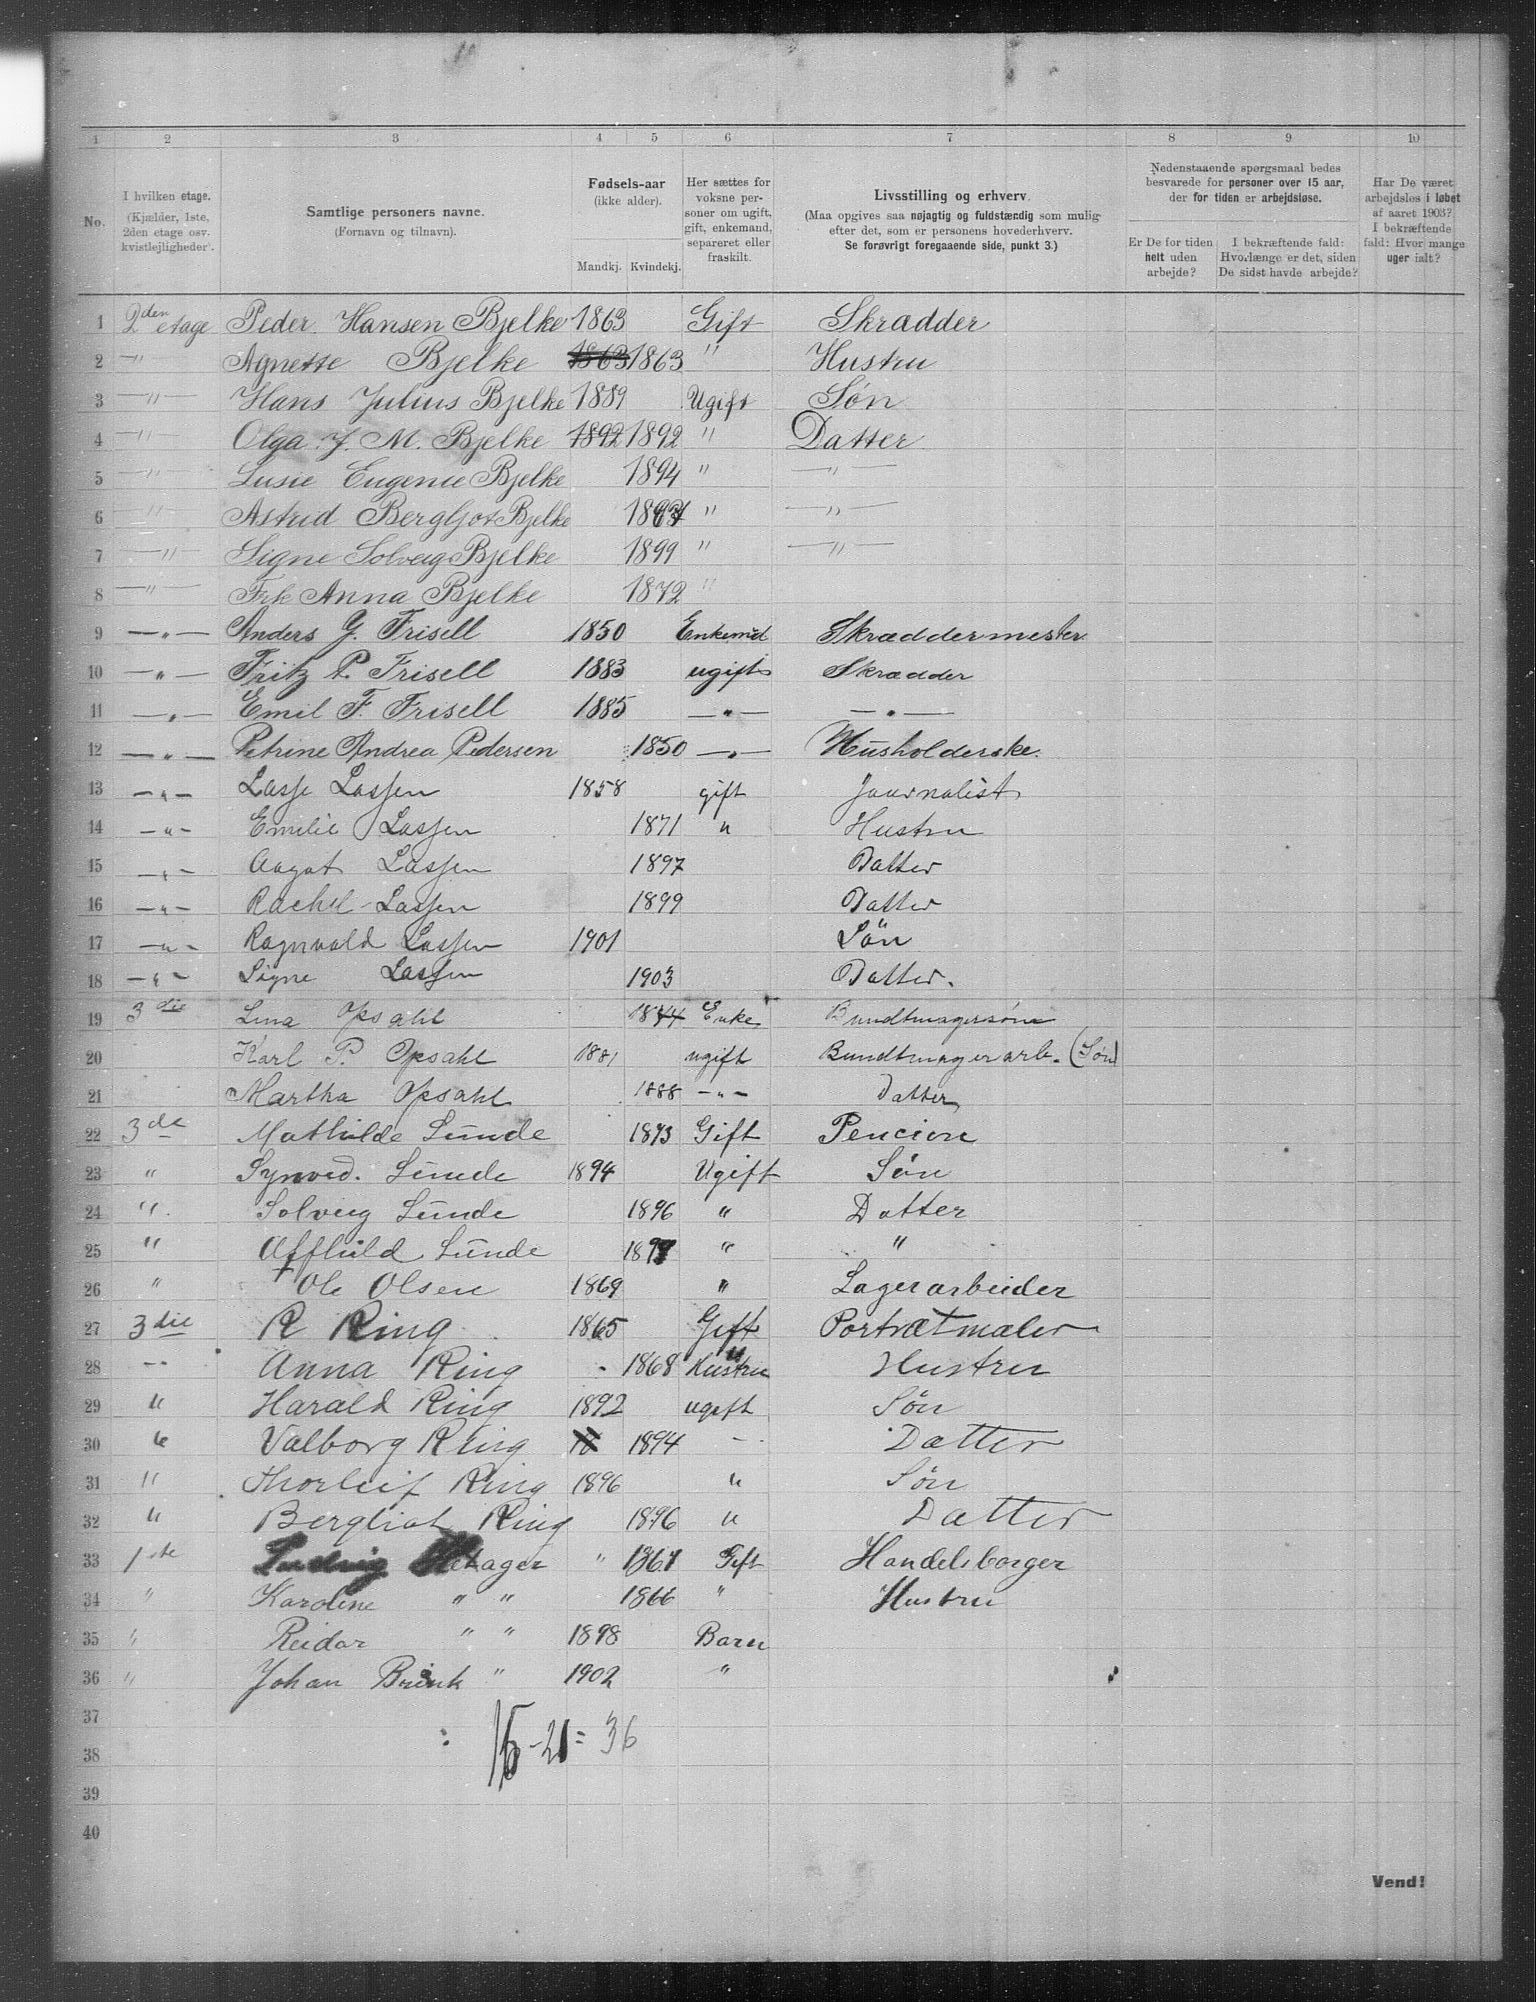 1 2 3 4 5 6 7 8 9 10
No.
I hvilken etage. (Kjælder, 1ste, 2den etage osv. kvistlejligheder).
Samtlige personers navne. (Fornavn og tilnavn).
Fødsels-aar (ikke alder). Mandkj. Kvindekj.
Her sættes for voksne personer om ugift, gift, enkemand, separeret eller fraskilt.
Livsstilling og erhverv. (Maa opgives saa nøjagtig og fuldstændig som muligt efter det, som er personens hovederhverv. Se forøvrigt foregaaende side, punkt 3.)
Nedenstaaende spørgsmaal bedes besvarede for personer over 15 aar, der for tiden er arbejdsløse.
Er De for tiden helt uden arbejde?
I bekræftende fald: Hvorlænge er det, siden De sidst havde arbejde?
Har De været arbejdsløs i løbet af aaret 1903? I bekræftende fald: Hvor mange uger ialt?
1 2den etage Peder Hansen Bjelke 1863 Gift Skrædder
2 —"— Agnette Bjelke 1863 1863 " Hustru
3 —"— Hans Julius Bjelke 1889 Ugift Søn
4 —"— Olga J. M. Bjelke 1892 1892 " Datter
5 —"— Lusie Eugenie Bjelke 1894 " —"—
6 —"— Astrid Bergljot Bjelke " —"—
7 —"— Signe Solveig Bjelke 1899 " —"—
8 —"— Frk Anna Bjelke 1872 "
9 —"— Anders G. Frisell 1850 Enkemd Skræddermester
10 —"— Fritz P. Frisell 1883 ugift Skrædder
11 —"— Emil F. Frisell 1885 —"— —"—
12 —"— Petrine Andrea Pedersen 1850 —"— Husholderske.
13 —"— Lasse Lassen 1858 gift Journalist
14 —"— Emilie Lassen 1871 " Hustru
15 —"— Aagot Lassen 1897 Datter
16 —"— Rachel Lassen 1899 Datter
17 —"— Ragnvald Lassen 1901 Søn
18 —"— Signe Lassen 1903 Datter.
19 3die Lina Opsahl 1844 Enke
20 Karl P. Opsahl 1881 ugift Bundtmagerarb. (Søn)
21 Martha Opsahl 1888 —"— Datter
22 3de Mathilde Lunde 1873 Gift Pencion
23 " Synved. Lunde 1894 Ugift Søn
24 " Solveig Lunde 1896 " Datter
25 " Lunde " "
26 " Ole Olsen 1869 " Lagerarbeider
27 3die R Ring 1865 Gift Portrætmaler
28 " Anna Ring 1868 Hustru " Hustru
29 " Harald Ring 1892 ugift Søn
30 " Valborg Ring 1894 — Datter
31 " Thorleif Ring 1896 " Søn
32 " Bergliot Ring 1896 " Datter
33 1ste Ludvig " 1867 Gift Handelsborger
34 " Karoline " " 1866 " Hustru
35 " Reidar " " 1898 Barn
36 " Johan Brink " 1902 "
37 15-21=36
38
39
40
Vend!